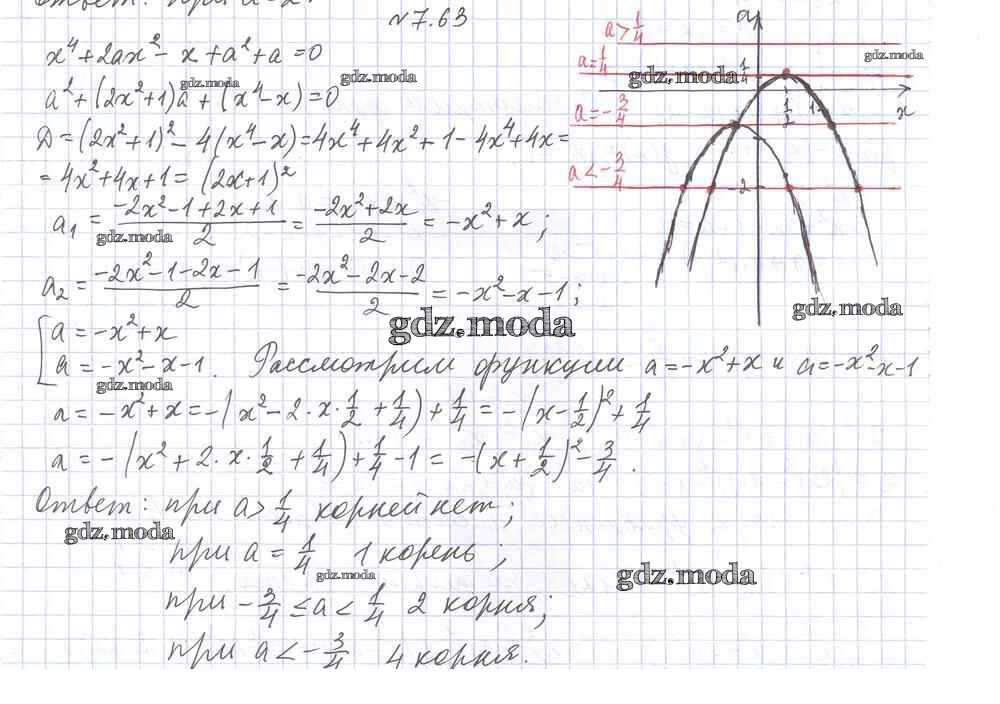 Ответ: при a=2.
№7.63
x⁴+2ax²- x+a²+a=0
a²+(2x²+1)a+(x⁴-x)=0
D=(2x²+1)²-4(x⁴-x)=4x⁴+4x²+1-4x⁴+4x=
=4x²+4x+1=(2x+1)²
a₁ = (-2x²-1+2x+1)/2 = (-2x²+2x)/2 = -x²+x;
a₂ = (-2x²-1-2x-1)/2 = (-2x²-2x-2)/2 = -x²-x-1;
[ a=-x²+x
a=-x²-x-1. Рассмотрим функции a=-x²+x и a=-x²-x-1
a=-x²+x=-(x²-2·x·1/2+1/4)+1/4=-(x-1/2)²+1/4
a=-(x²+2·x·1/2+1/4)+1/4-1=-(x+1/2)²-3/4.
Ответ: при a>1/4 корней нет;
при a=1/4 1 корень;
при -3/4≤a<1/4 2 корня;
при a<-3/4 4 корня.
a
a>1/4
a=1/4
1/4
a=-3/4
1/2
1
x
a<-3/4
-2
gdz.moda
gdz.moda
gdz.moda
gdz.moda
gdz.moda
gdz.moda
gdz.moda
gdz.moda
gdz.moda
gdz.moda
gdz.moda